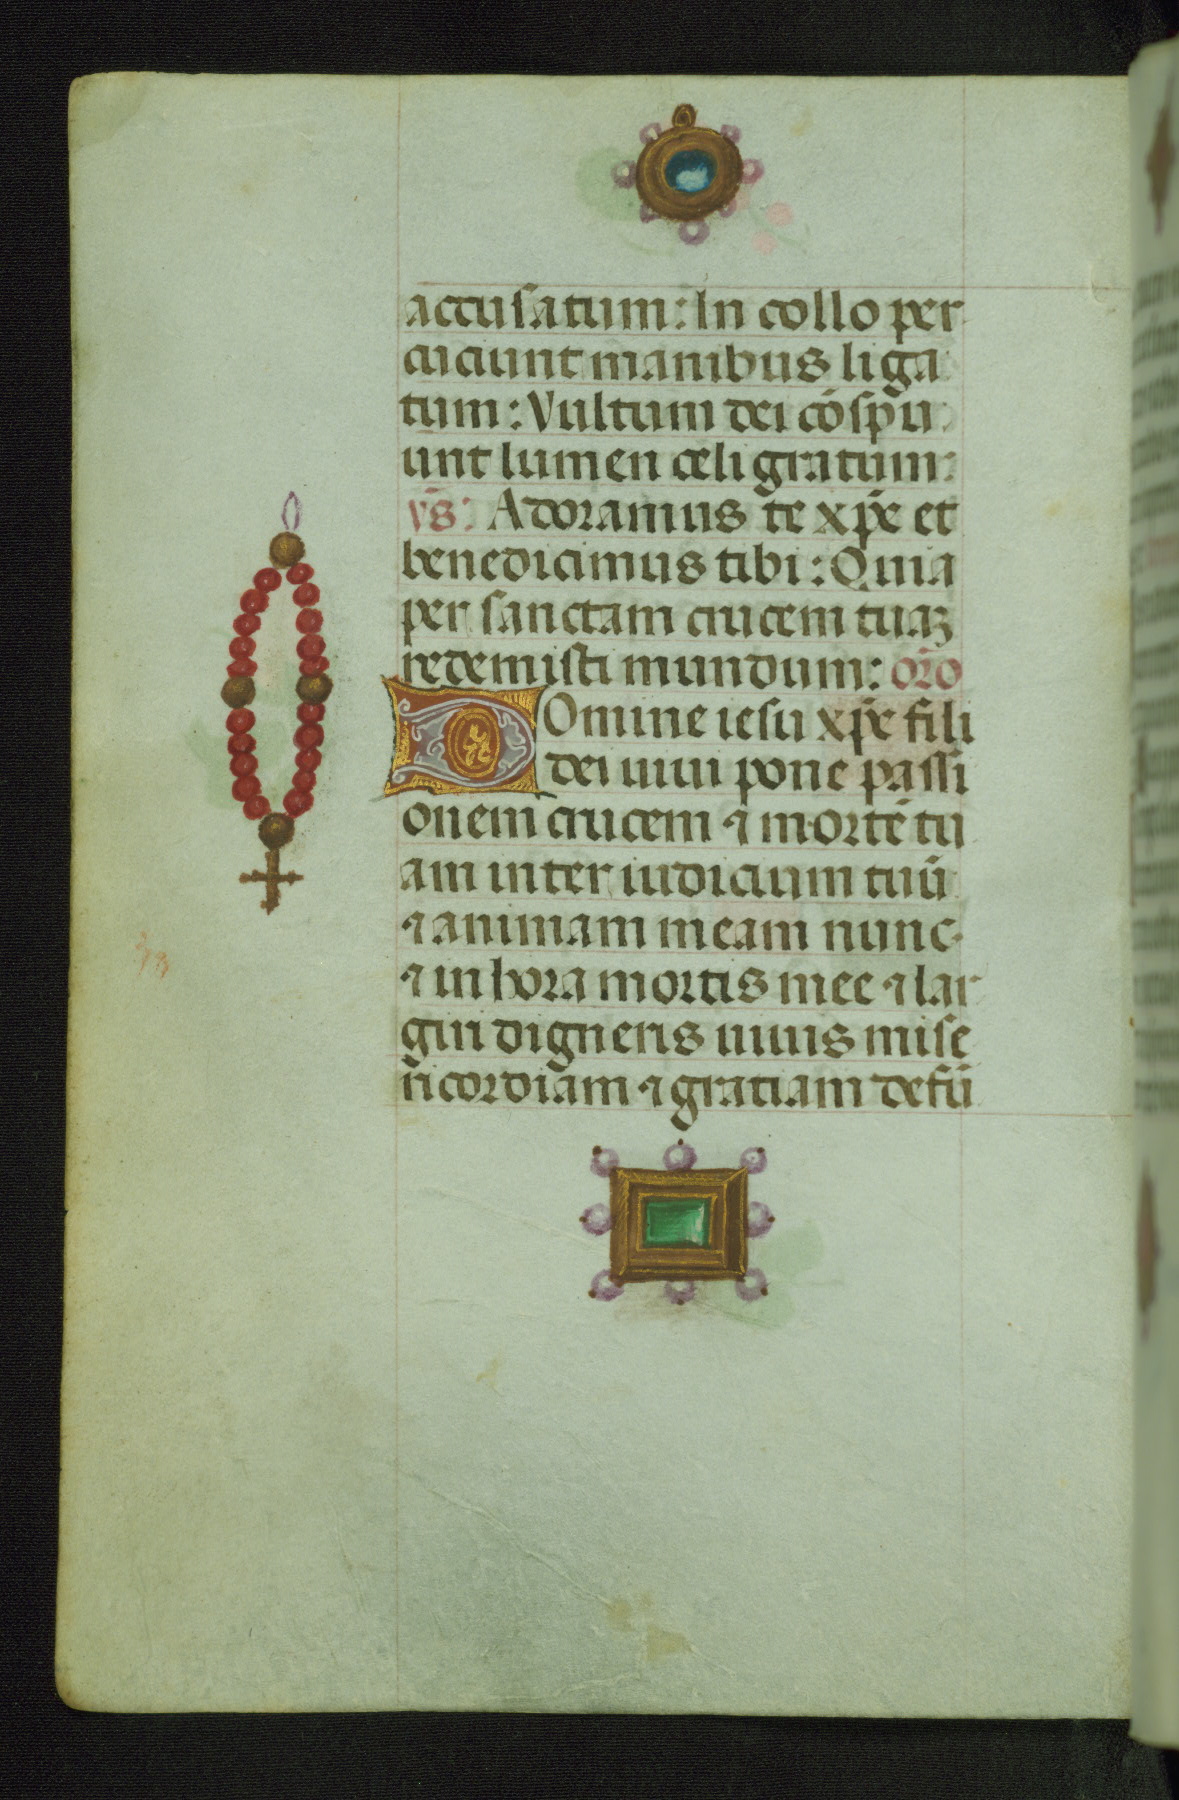 accusatum: In collo per
cuciunt manibus liga
tum: Vultum dei cōspu
unt lumen celi gratum:
vs̄: Adoramus te xp̄e et
benedicimus tibi: Quia
per sanctam crucem tuaꝫ
redemisti mundum: or̄o
DOmine iesu xp̄e fili
dei uiui pone passi
onem crucem ⁊ mortē tu
am inter iudicium tuū
⁊ animam meam nunc
⁊ in hora mortis mee ⁊ lar
giri digneris uiuis mise
ricordiam ⁊ gratiam defū